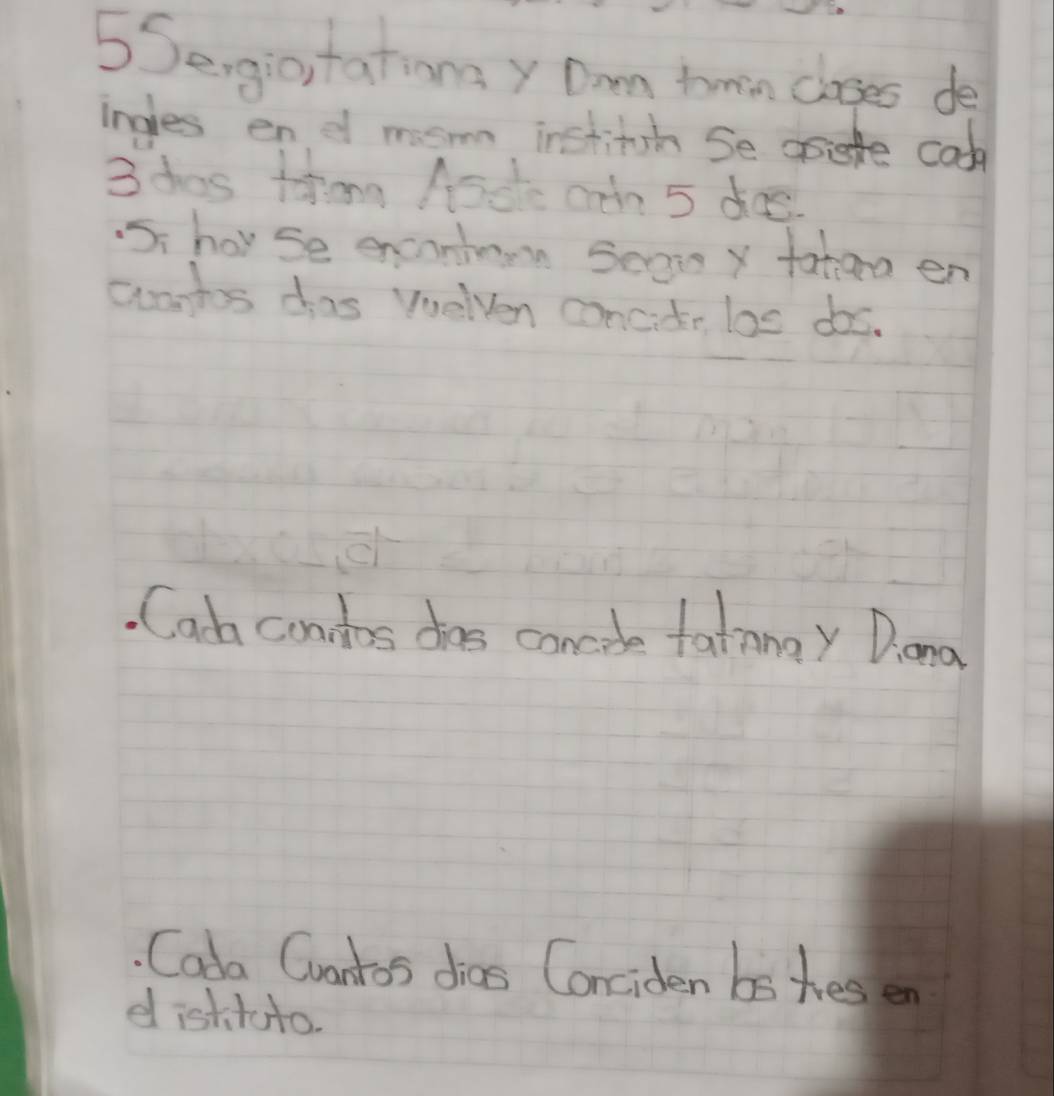 5 Sergio, tatiana y Diana toman clases de
ingles en el mismo instituto Se asiste cada
3 dias tatiana Asiste cada 5 dias.
.Si hoy se encontraron Sergio y tatiana en
cuantos dias vuelven concidir los dos.
.Cada cuantos dias concide tatiana y Diana
.Cada Cuantos dias Conciden los tres en
el istituto.